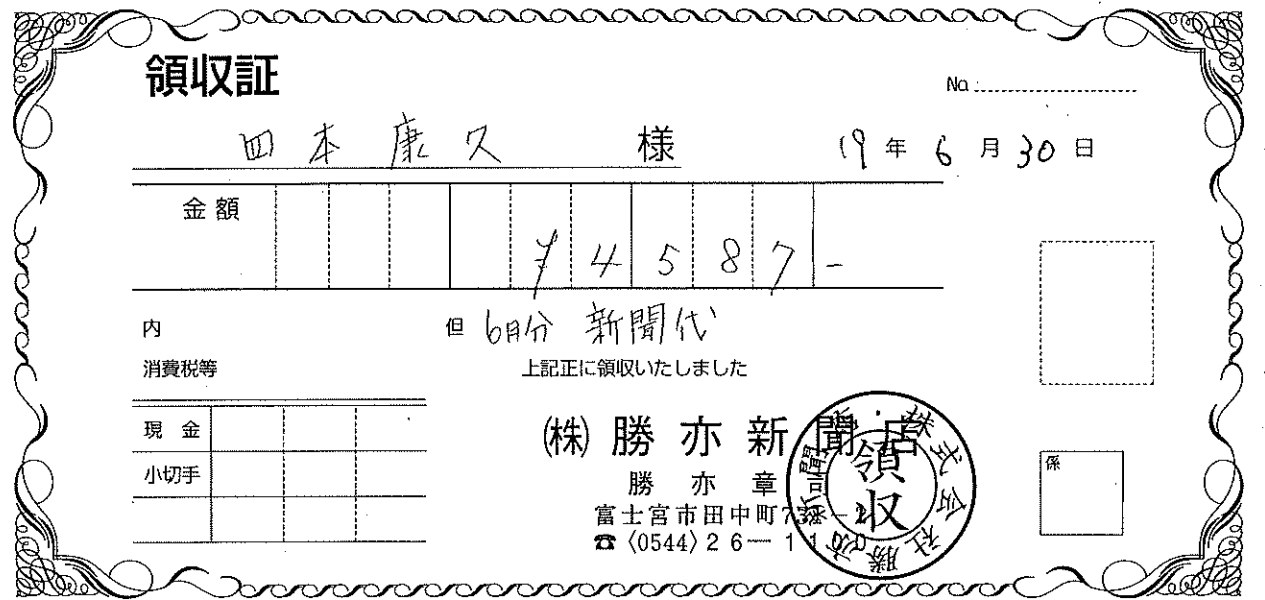 領収証
No
四本康久 様
19年6月30日
金額
¥4587-
内
但 6月分 新聞代
消費税等
上記正に領収いたしました
現金
小切手
㈱勝亦新聞店
勝亦章
富士宮市田中町
☎〈0544〉26-11
係
領収
株式会社勝亦新聞店